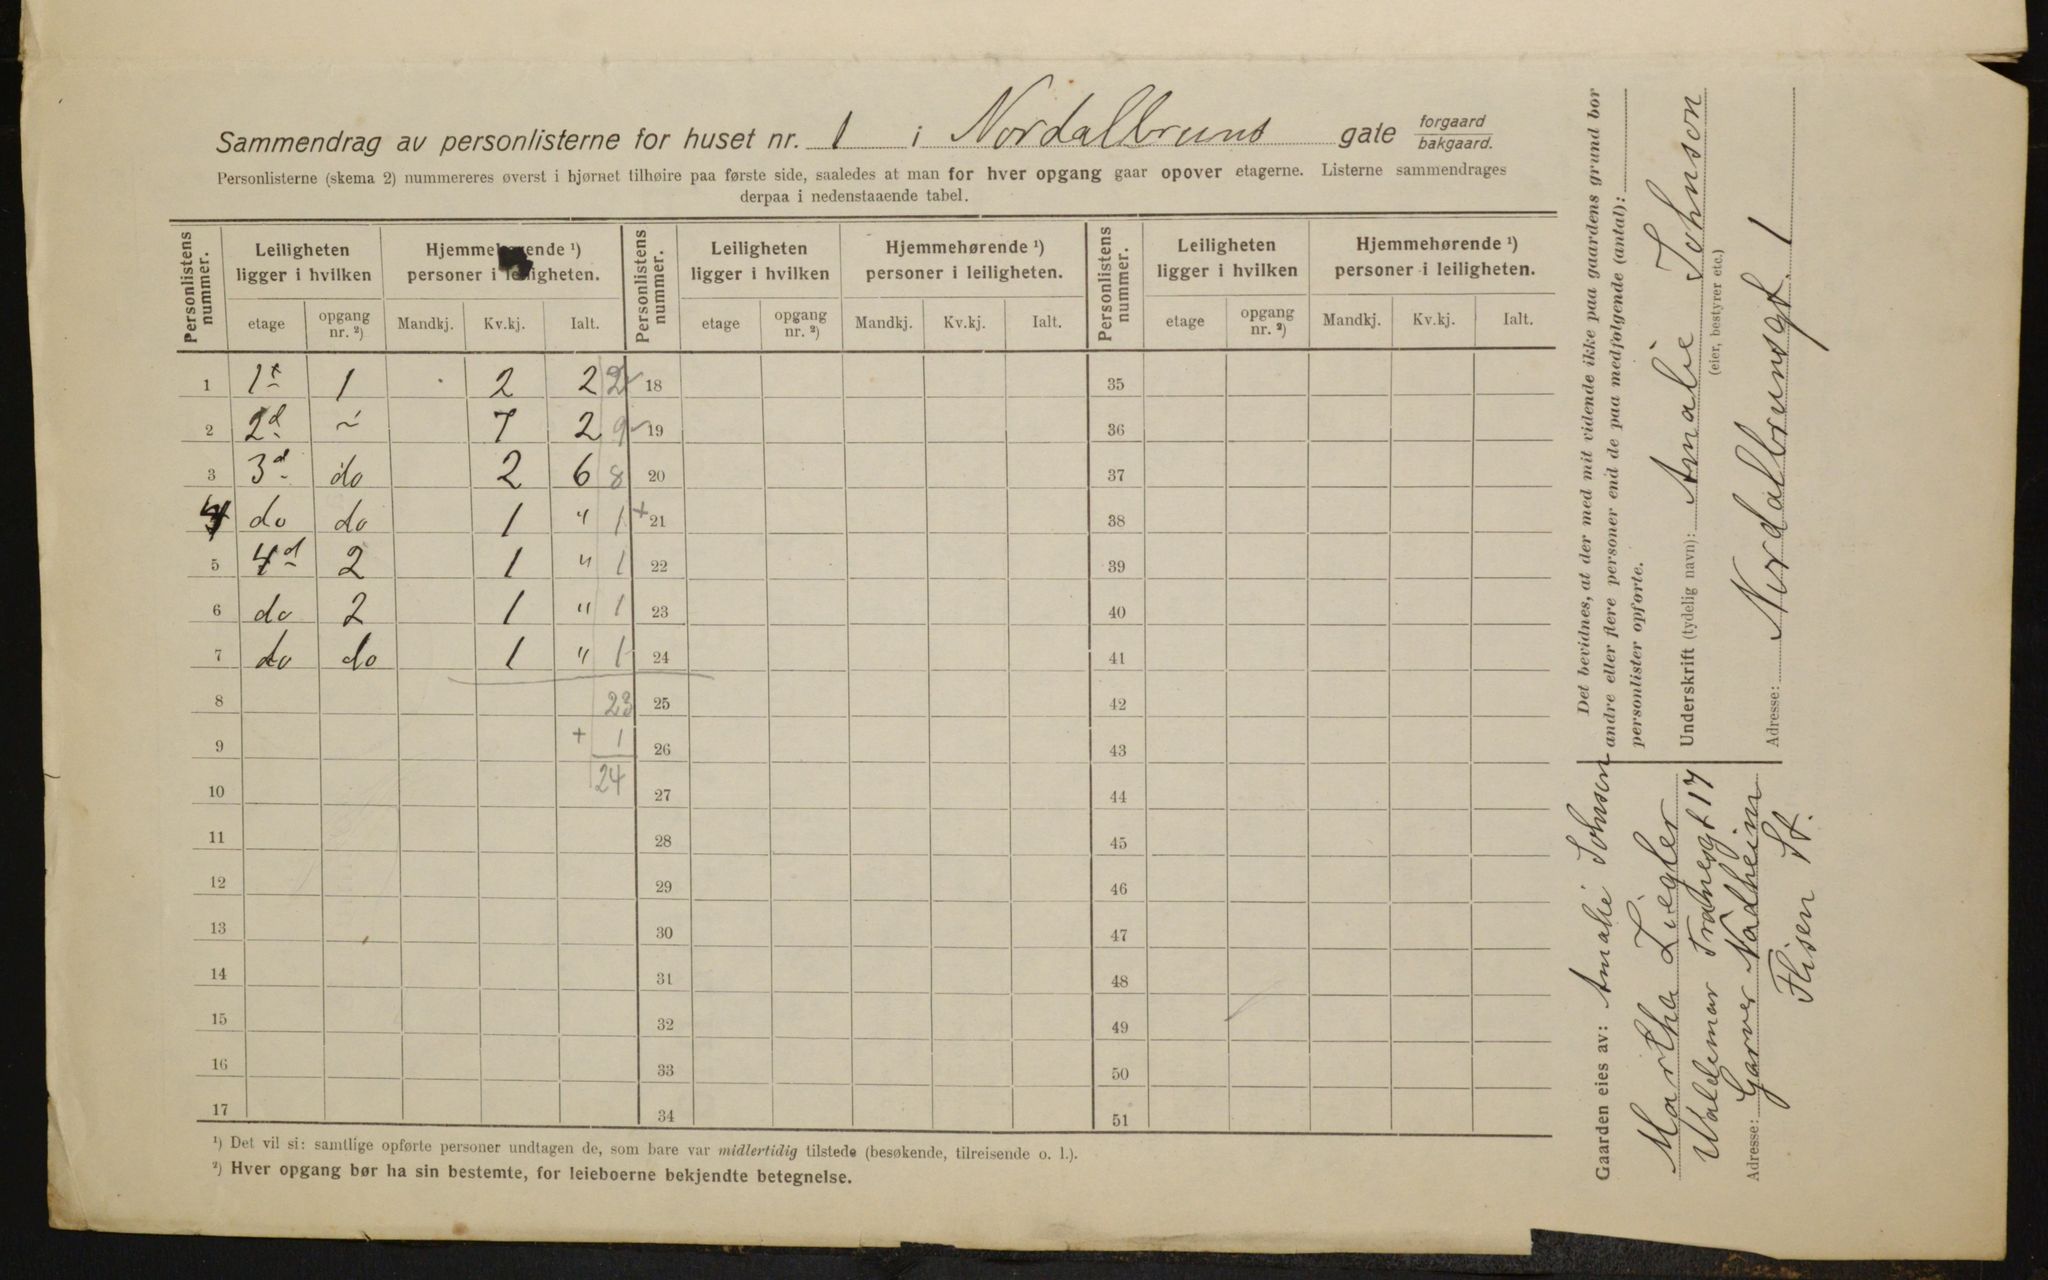 Sammendrag av personlisterne for huset nr. 1 i Nordalbruns gate forgaard
bakgaard.
Personlisterne (skema 2) nummereres øverst i hjørnet tilhøire paa første side, saaledes at man for hver opgang gaar opover etagerne. Listerne sammendrages
derpaa i nedenstaaende tabel.
Personlistens nummer. Leiligheten ligger i hvilken Hjemmehørende ¹) personer i leiligheten. Personlistens nummer. Leiligheten ligger i hvilken Hjemmehørende ¹) personer i leiligheten. Personlistens nummer. Leiligheten ligger i hvilken Hjemmehørende ¹) personer i leiligheten.
etage opgang nr. ²) Mandkj. Kv.kj. Ialt. etage opgang nr. ²) Mandkj. Kv.kj. Ialt. etage opgang nr. ²) Mandkj. Kv.kj. Ialt.
1 1st 1 2 2 2 18 35
2 2d ~ 7 2 9 19 36
3 3d do 2 6 8 20 37
4 do do 1 " 1 + 21 38
5 4d 2 1 " 1 22 39
6 do 2 1 " 1 23 40
7 do do 1 " 1 24 41
8 23 25 42
9 + 1 26 43
10 24 27 44
11 28 45
12 29 46
13 30 47
14 31 48
15 32 49
16 33 50
17 34 51
¹) Det vil si: samtlige opførte personer undtagen de, som bare var midlertidig tilstede (besøkende, tilreisende o. l.).
²) Hver opgang bør ha sin bestemte, for leieboerne bekjendte betegnelse.
Det bevidnes, at der med mit vidende ikke paa gaardens grund bor
andre eller flere personer end de paa medfølgende (antal):
personlister opførte.
Underskrift (tydelig navn): Amalie Johnson
(eier, bestyrer etc.)
Adresse: Nordalbrunsgt. 1
Gaarden eies av: Amalie Johnsen
Martha Ziegler
Waldemar Tranesgt 17
Adresse: Garver Nadheim
Flisen St.